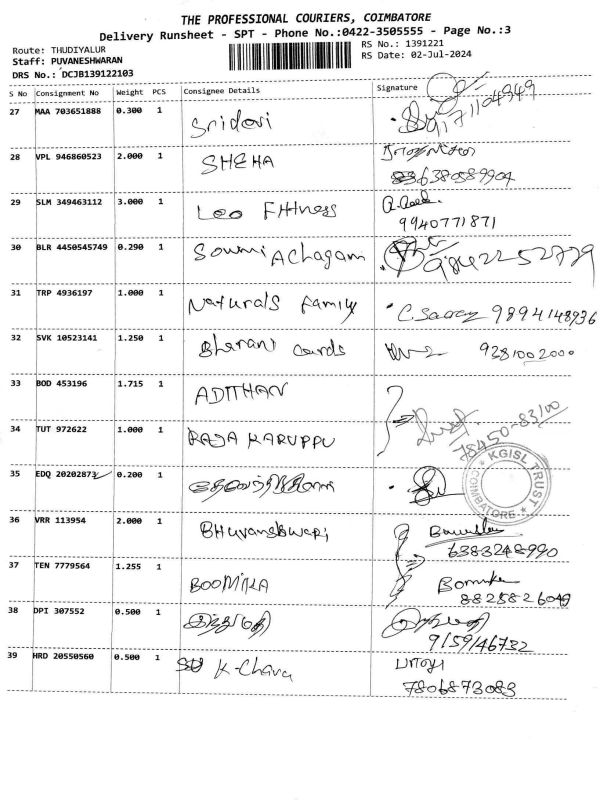 THE PROFESSIONAL COURIERS, COIMBATORE
Delivery Runsheet - SPT - Phone No.:0422-3505555 - Page No.:3
Route: THUDIYALUR
RS No.: 1391221
Staff: PUVANESHWARAN
RS Date: 02-Jul-2024
DRS No.: DCJB139122103
S No Consignment No Weight PCS Consignee Details Signature
27 MAA 703651888 0.300 1 Sridevi
9171104949
28 VPL 946860523 2.000 1 SHEHA
6380589904
29 SLM 349463112 3.000 1 Leo Fitness
9940771871
30 BLR 4450545749 0.290 1 Sowmi Achagam
31 TRP 4936197 1.000 1 Naturals family C.Saroy 9894148936
32 SVK 10523141 1.250 1 Bharani Cards 9281002000
33 BOD 453196 1.715 1 ADITHAN
78450-83100
34 TUT 972622 1.000 1 RAJA KARUPPU
KGISL TRUST
COIMBATORE
35 EDQ 20202873 0.200 1
36 VRR 113954 2.000 1 Bhuvaneshwari
6383248990
37 TEN 7779564 1.255 1 BOOMIKA
8825826049
38 DPI 307552 0.500 1 இந்துமதி
9159146732
39 HRD 20550560 0.500 1 K-Charu
7806873083